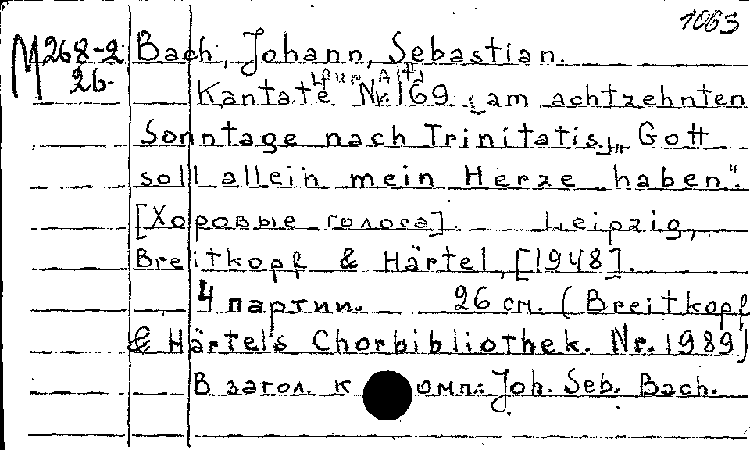 1063
M 268-2 Bach, Johann, Sebastian.
26.
Kantate Nr. 169 am achtzehnten
Sonntage nach Trinitatis „Gott
soll allein mein Herze haben".
[Хоровые голоса]. Leipzig,
Breitkopf & Härtel, [1948].
4 партии. 26 см. (Breitkopf
& Härtels Chorbibliothek. Nr. 1989)
В загол. к омп.: Joh. Seb. Bach.